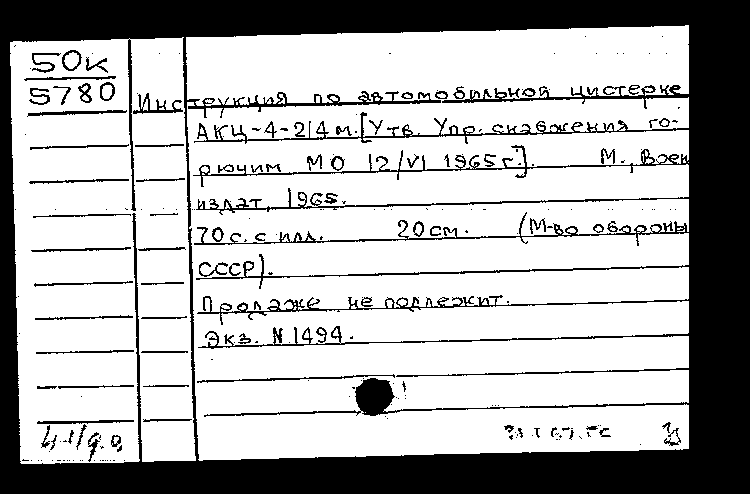 50к
5780
Инструкция по автомобильной цистерне
АКЦ-4-214м. [Утв. Упр. снабжения го-
рючим МО 12/VI 1965г.]. М., Воен
издат, 1965.
70 с. с илл. 20 см. (М-во обороны
СССР).
Продаже не подлежит.
Экз. N 1494.